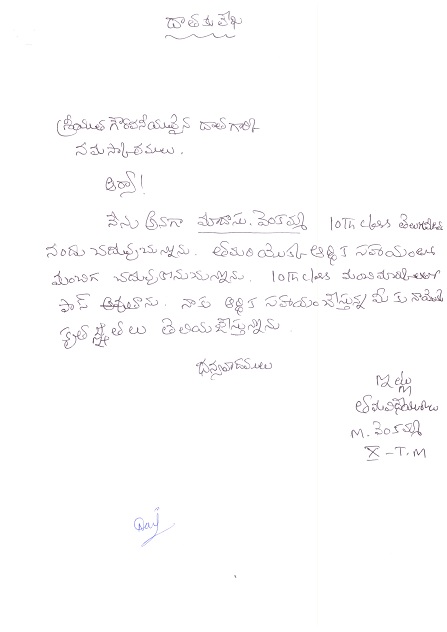 దాతకు లేఖ
శ్రీయుత గౌరవనీయులైన దాతగారికి
నమస్కారములు.
ఆర్యా!
నేను అనగా మాదాసు. వెంకమ్మ 10Th class తెలుగుమీడియం
నందు చదువుచున్నాను. తమరి యొక్క ఆర్థిక సహాయంతో
మంచిగ చదువుకొనుచున్నాను. 10Th class మంచి మార్కులతో
పాస్ అవుతాను. నాకు ఆర్థిక సహాయం చేస్తున్న మీకు నాయొక్క
కృతజ్ఞతలు తెలియచేస్తున్నాను.
ధన్యవాదములు
ఇట్లు
తమ విధేయురాలు
M. వెంకమ్మ
X - T.M